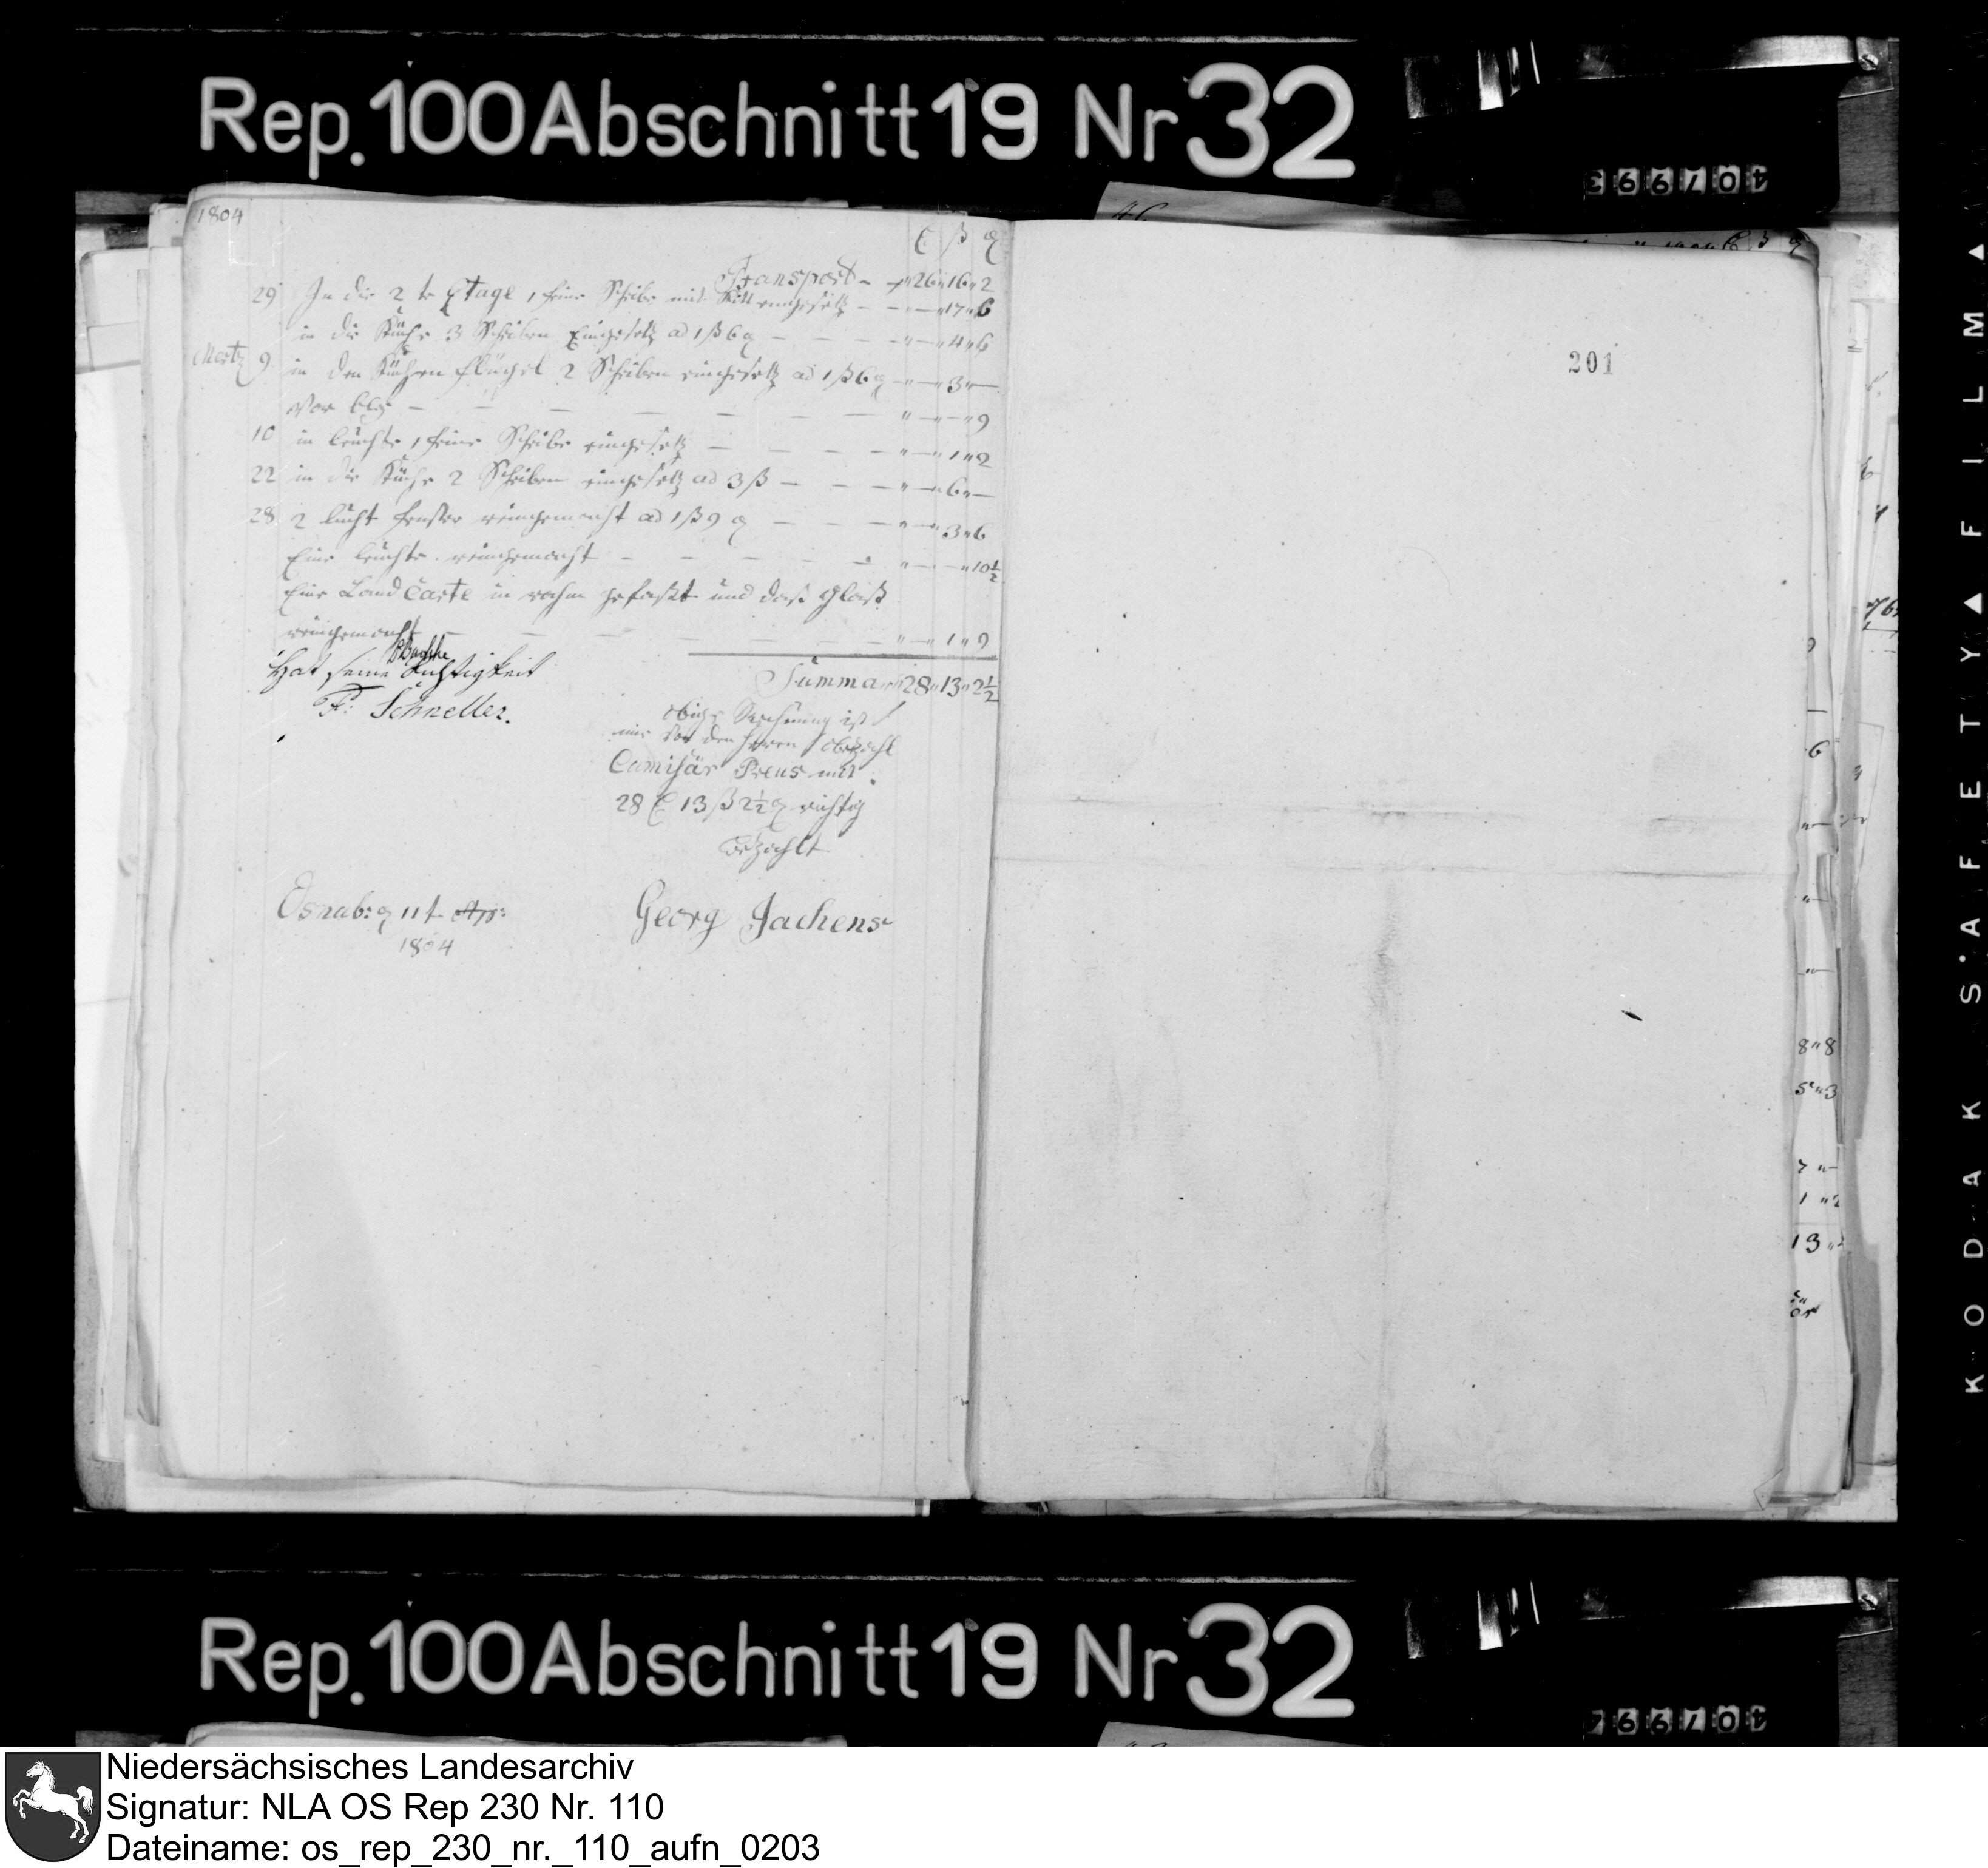 Rep. 100 Abschnitt 19 Nr 32
407993
1804
ß
Transport - 26 " 16 " 2
29 In die 2 te Etage 1 feine Scheibe mit Kitt eingesetz - - " - " 17 " 6
in die Küche 3 Scheiben Eingesetz ad 1 ß 6 - - - " - " 4 " 6
Mertz 9 in den Küchen flügel 2 Scheiben eingesetz ad 1 ß 6 " - " 3 " -
vor bley - - - - - - " - " - " 9
10 in leuchte 1 feine Scheibe eingesetz - - - - " - " 1 " 2
22 in die Küche 2 Scheiben eingesetz ad 3 ß - - - " - " 6 " -
28 2 lucht fenster reingemacht ad 1 ß 9 - - - " - " 3 " 6
Eine leuchte reingemacht - - - - " - " - " 10 1/2
Eine Land Carte in rahm gefasst und dass Glass
reingemacht - - - - - " - " 1 " 9
Hat seine Richtigkeit
F: Schneller.
Summa " 28 " 13 " 2 1/2
obige Rechnung ist
mir von den Herren
Comisär Preus mit
28 13 ß 2 1/2 richtig
bezahlt
Osnab: 11t Ap:
1804
Georg Jachens
201
6
8 " 8
5 " 3
7 " -
1 " 2
13 "
KODAK SAFETY FILM
Rep. 100 Abschnitt 19 Nr 32
407994
Niedersächsisches Landesarchiv
Signatur: NLA OS Rep 230 Nr. 110
Dateiname: os_rep_230_nr._110_aufn_0203